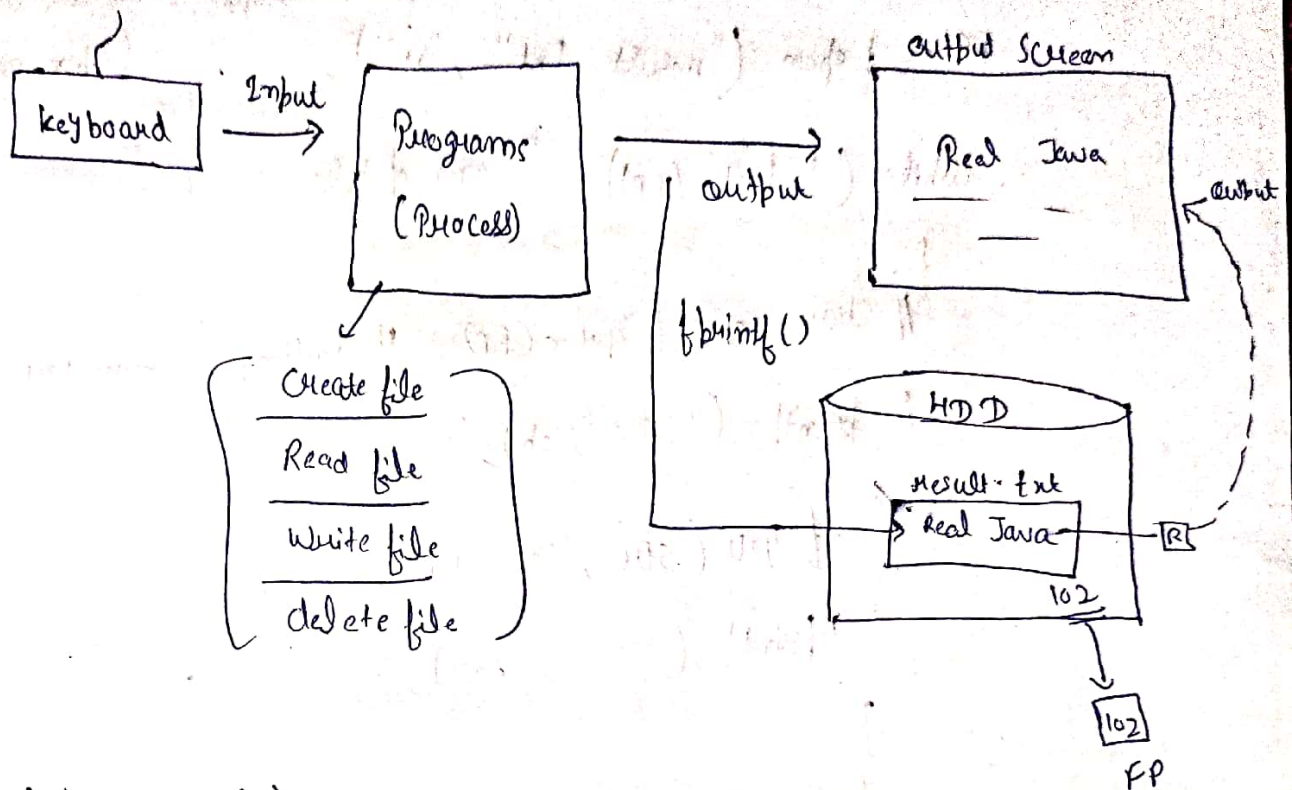 keyboard
Input
Programs
(Process)
output
output Screen
Real Java
output
fprintf()
Create file
Read file
Write file
delete file
HDD
result.txt
Real Java
R
102
102
FP